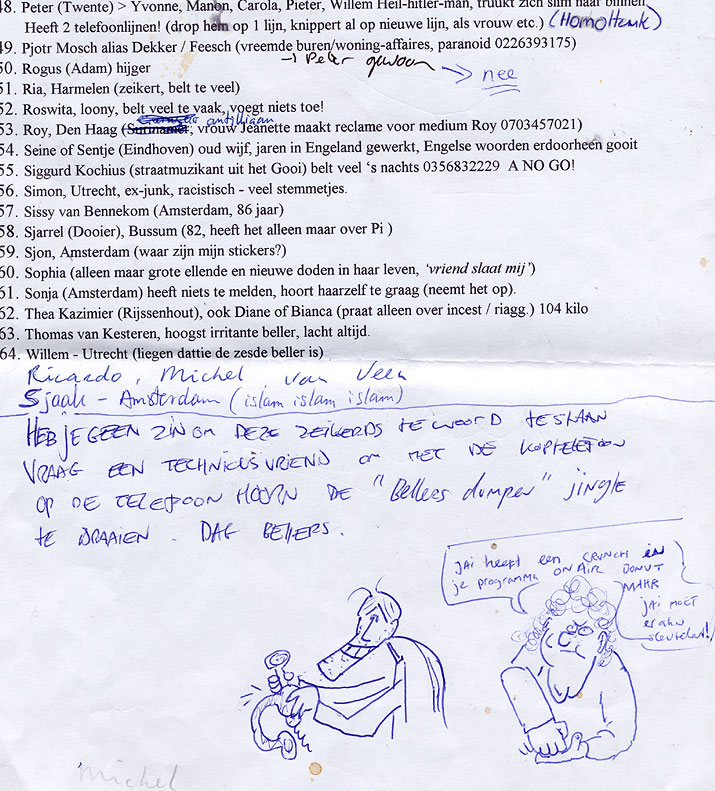 48. Peter (Twente) > Yvonne, Manon, Carola, Pieter, Willem Heil-hitler-man, trukt zich slim naar binnen
Heeft 2 telefoonlijnen! (drop hem op 1 lijn, knippert al op nieuwe lijn, als vrouw etc.) (HomoHenk)
49. Pjotr Mosch alias Dekker / Feesch (vreemde buren/woning-affaires, paranoid 0226393175)
50. Rogus (Adam) hijger → Peter gewoon → nee
51. Ria, Harmelen (zeikert, belt te veel)
52. Roswita, loony, belt veel te vaak, voegt niets toe!
antilliaan
53. Roy, Den Haag (Surinamer, vrouw Jeanette maakt reclame voor medium Roy 0703457021)
54. Seine of Sentje (Eindhoven) oud wijf, jaren in Engeland gewerkt, Engelse woorden erdoorheen gooit
55. Siggurd Kochius (straatmuzikant uit het Gooi) belt veel ‘s nachts 0356832229 A NO GO!
56. Simon, Utrecht, ex-junk, racistisch - veel stemmetjes.
57. Sissy van Bennekom (Amsterdam, 86 jaar)
58. Sjarrel (Dooier), Bussum (82, heeft het alleen maar over Pi )
59. Sjon, Amsterdam (waar zijn mijn stickers?)
60. Sophia (alleen maar grote ellende en nieuwe doden in haar leven, ‘vriend slaat mij’)
61. Sonja (Amsterdam) heeft niets te melden, hoort haarzelf te graag (neemt het op).
62. Thea Kazimier (Rijssenhout), ook Diane of Bianca (praat alleen over incest / riagg.) 104 kilo
63. Thomas van Kesteren, hoogst irritante beller, lacht altijd.
64. Willem - Utrecht (liegen dattie de zesde beller is)
Ricardo, Michel van Veen
Sjaak - Amsterdam (islam islam islam)
HEB JE GEEN ZIN OM DEZE ZEIKERDS TE WOORD TE STAAN
VRAAG EEN TECHNICUSVRIEND OM MET DE KOPTELEFOON
OP DE TELEFOON HOORN DE "Bellers dumpen" jingle
TE DRAAIEN. DAG BELLERS.
JAI heeft een CRUNCH in
je programma ON AIR DONUT
MAHR
JAI MOET
erahn
sleutelen!
Michel